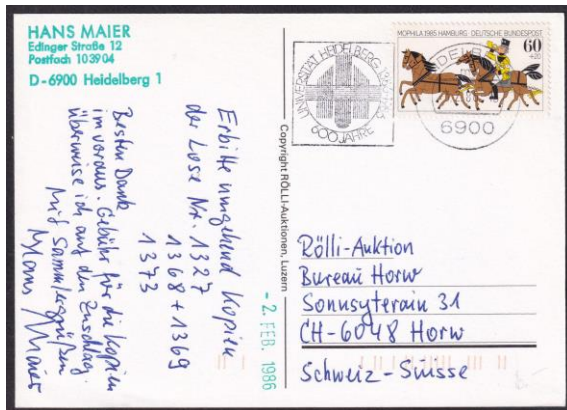 HANS MAIER
Edinger Straße 12
Postfach 103904
D-6900 Heidelberg 1
Erbitte umgehend Kopien
der Lose Nr. 1327
1368 + 1369
1373
Besten Dank
im voraus. Gebühr für die Kopien
überweise ich auf den Zuschlag.
Mit Sammlergrüßen
Hans Maier
Copyright RÖLLI-Auktionen, Luzern
-2. FEB. 1986
MOPHILA 1985 HAMBURG DEUTSCHE BUNDESPOST
60
+20
UNIVERSITÄT HEIDELBERG 1386-1986
600 JAHRE
6900
Rölli-Auktion
Bureau Horw
Sonnsyterain 31
CH-6048 Horw
Schweiz-Suisse